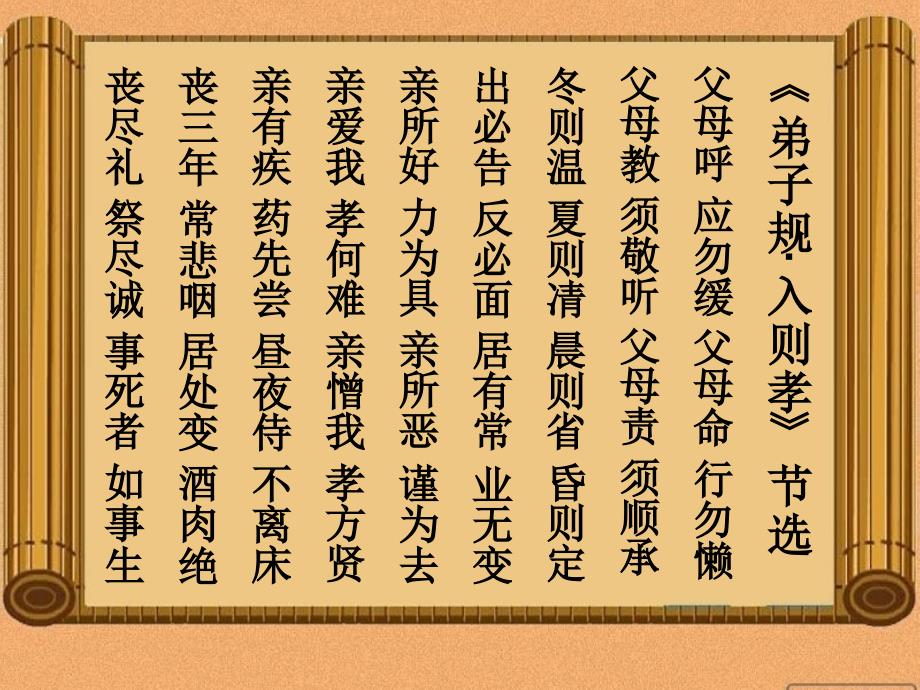 《弟子规·入则孝》 节选
父母呼 应勿缓 父母命 行勿懒
父母教 须敬听 父母责 须顺承
冬则温 夏则清 晨则省 昏则定
出必告 反必面 居有常 业无变
亲所好 力为具 亲所恶 谨为去
亲爱我 孝何难 亲憎我 孝方贤
亲有疾 药先尝 昼夜侍 不离床
丧三年 常悲咽 居处变 酒肉绝
丧尽礼 祭尽诚 事死者 如事生